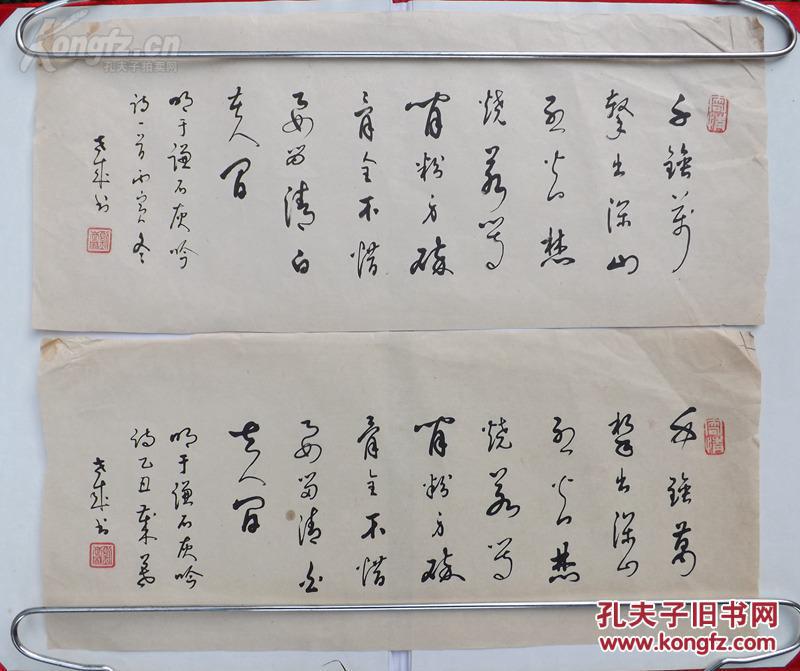 Kongfz.cn
孔夫子拍卖网
千鎚萬
擊出深山
烈火焚
燒若等
閒粉身碎
骨全不惜
要留清白
在人間
明于謙石灰吟
詩一首丙寅冬
成书
千鎚萬
擊出深山
烈火焚
燒若等
閒粉身碎
骨全不惜
要留清白
在人間
明于謙石灰吟
詩乙丑
成书
孔夫子旧书网
www.kongfz.com